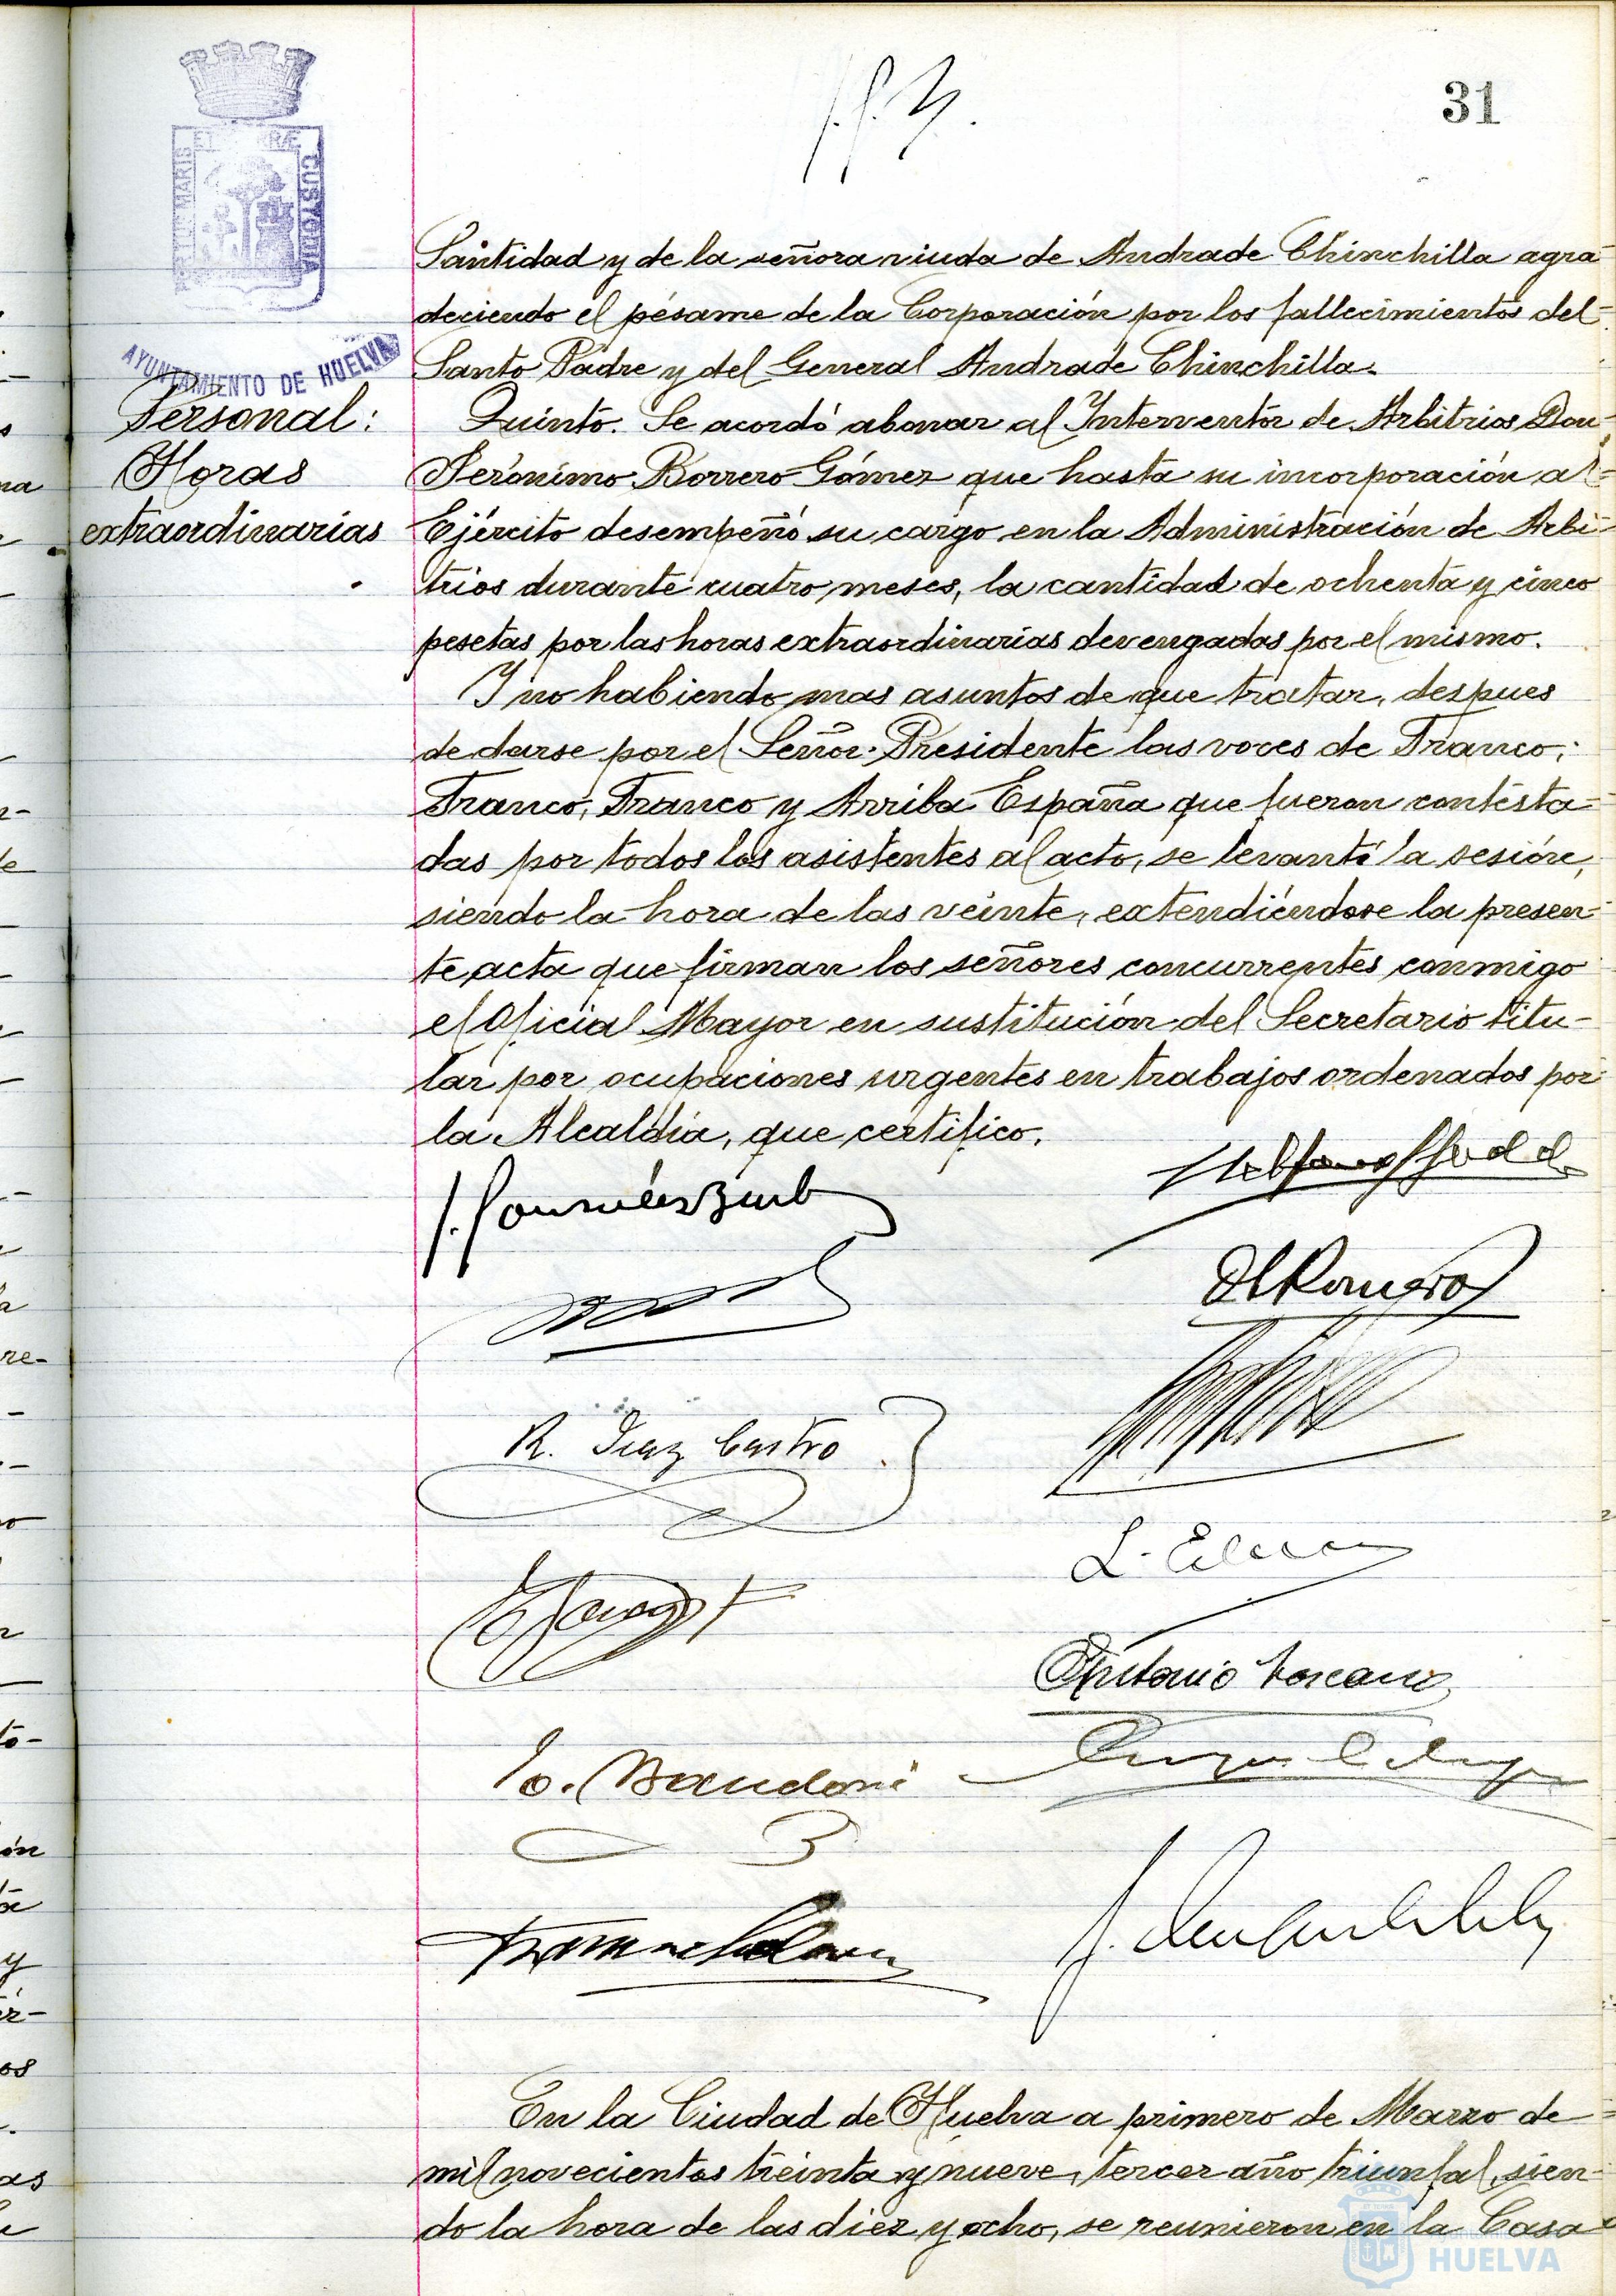 31
PORTUS MARIS ET TERRÆ CUSTODIA
AYUNTAMIENTO DE HUELVA
Santidad y de la señora viuda de Andrade Chinchilla agra-
deciendo el pésame de la Corporación por los fallecimientos del
Santo Padre y del General Andrade Chinchilla.
Personal:
Horas
extraordinarias
Quinto. Se acordó abonar al Interventor de Arbitrios Don
Jerónimo Borrero Gómez que hasta su incorporación al
Ejército desempeñó su cargo en la Administración de Arbi-
trios durante cuatro meses, la cantidad de ochenta y cinco
pesetas por las horas extraordinarias devengadas por el mismo.
Y no habiendo mas asuntos de que tratar, despues
de darse por el Señor Presidente las voces de Franco,
Franco, Franco y Arriba España que fueron contesta-
das por todos los asistentes al acto, se levantó la sesión,
siendo la hora de las veinte, extendiéndose la presen-
te acta que firman los señores concurrentes conmigo
el Oficial Mayor en sustitución del Secretario titu-
lar por ocupaciones urgentes en trabajos ordenados por
la Alcaldía, que certifico.
R. Diaz Castro
Antonio Toscano
En la Ciudad de Huelva a primero de Marzo de
mil novecientos treinta y nueve, tercer año triunfal, sien-
do la hora de las diez y ocho, se reunieron en la Casa
HUELVA